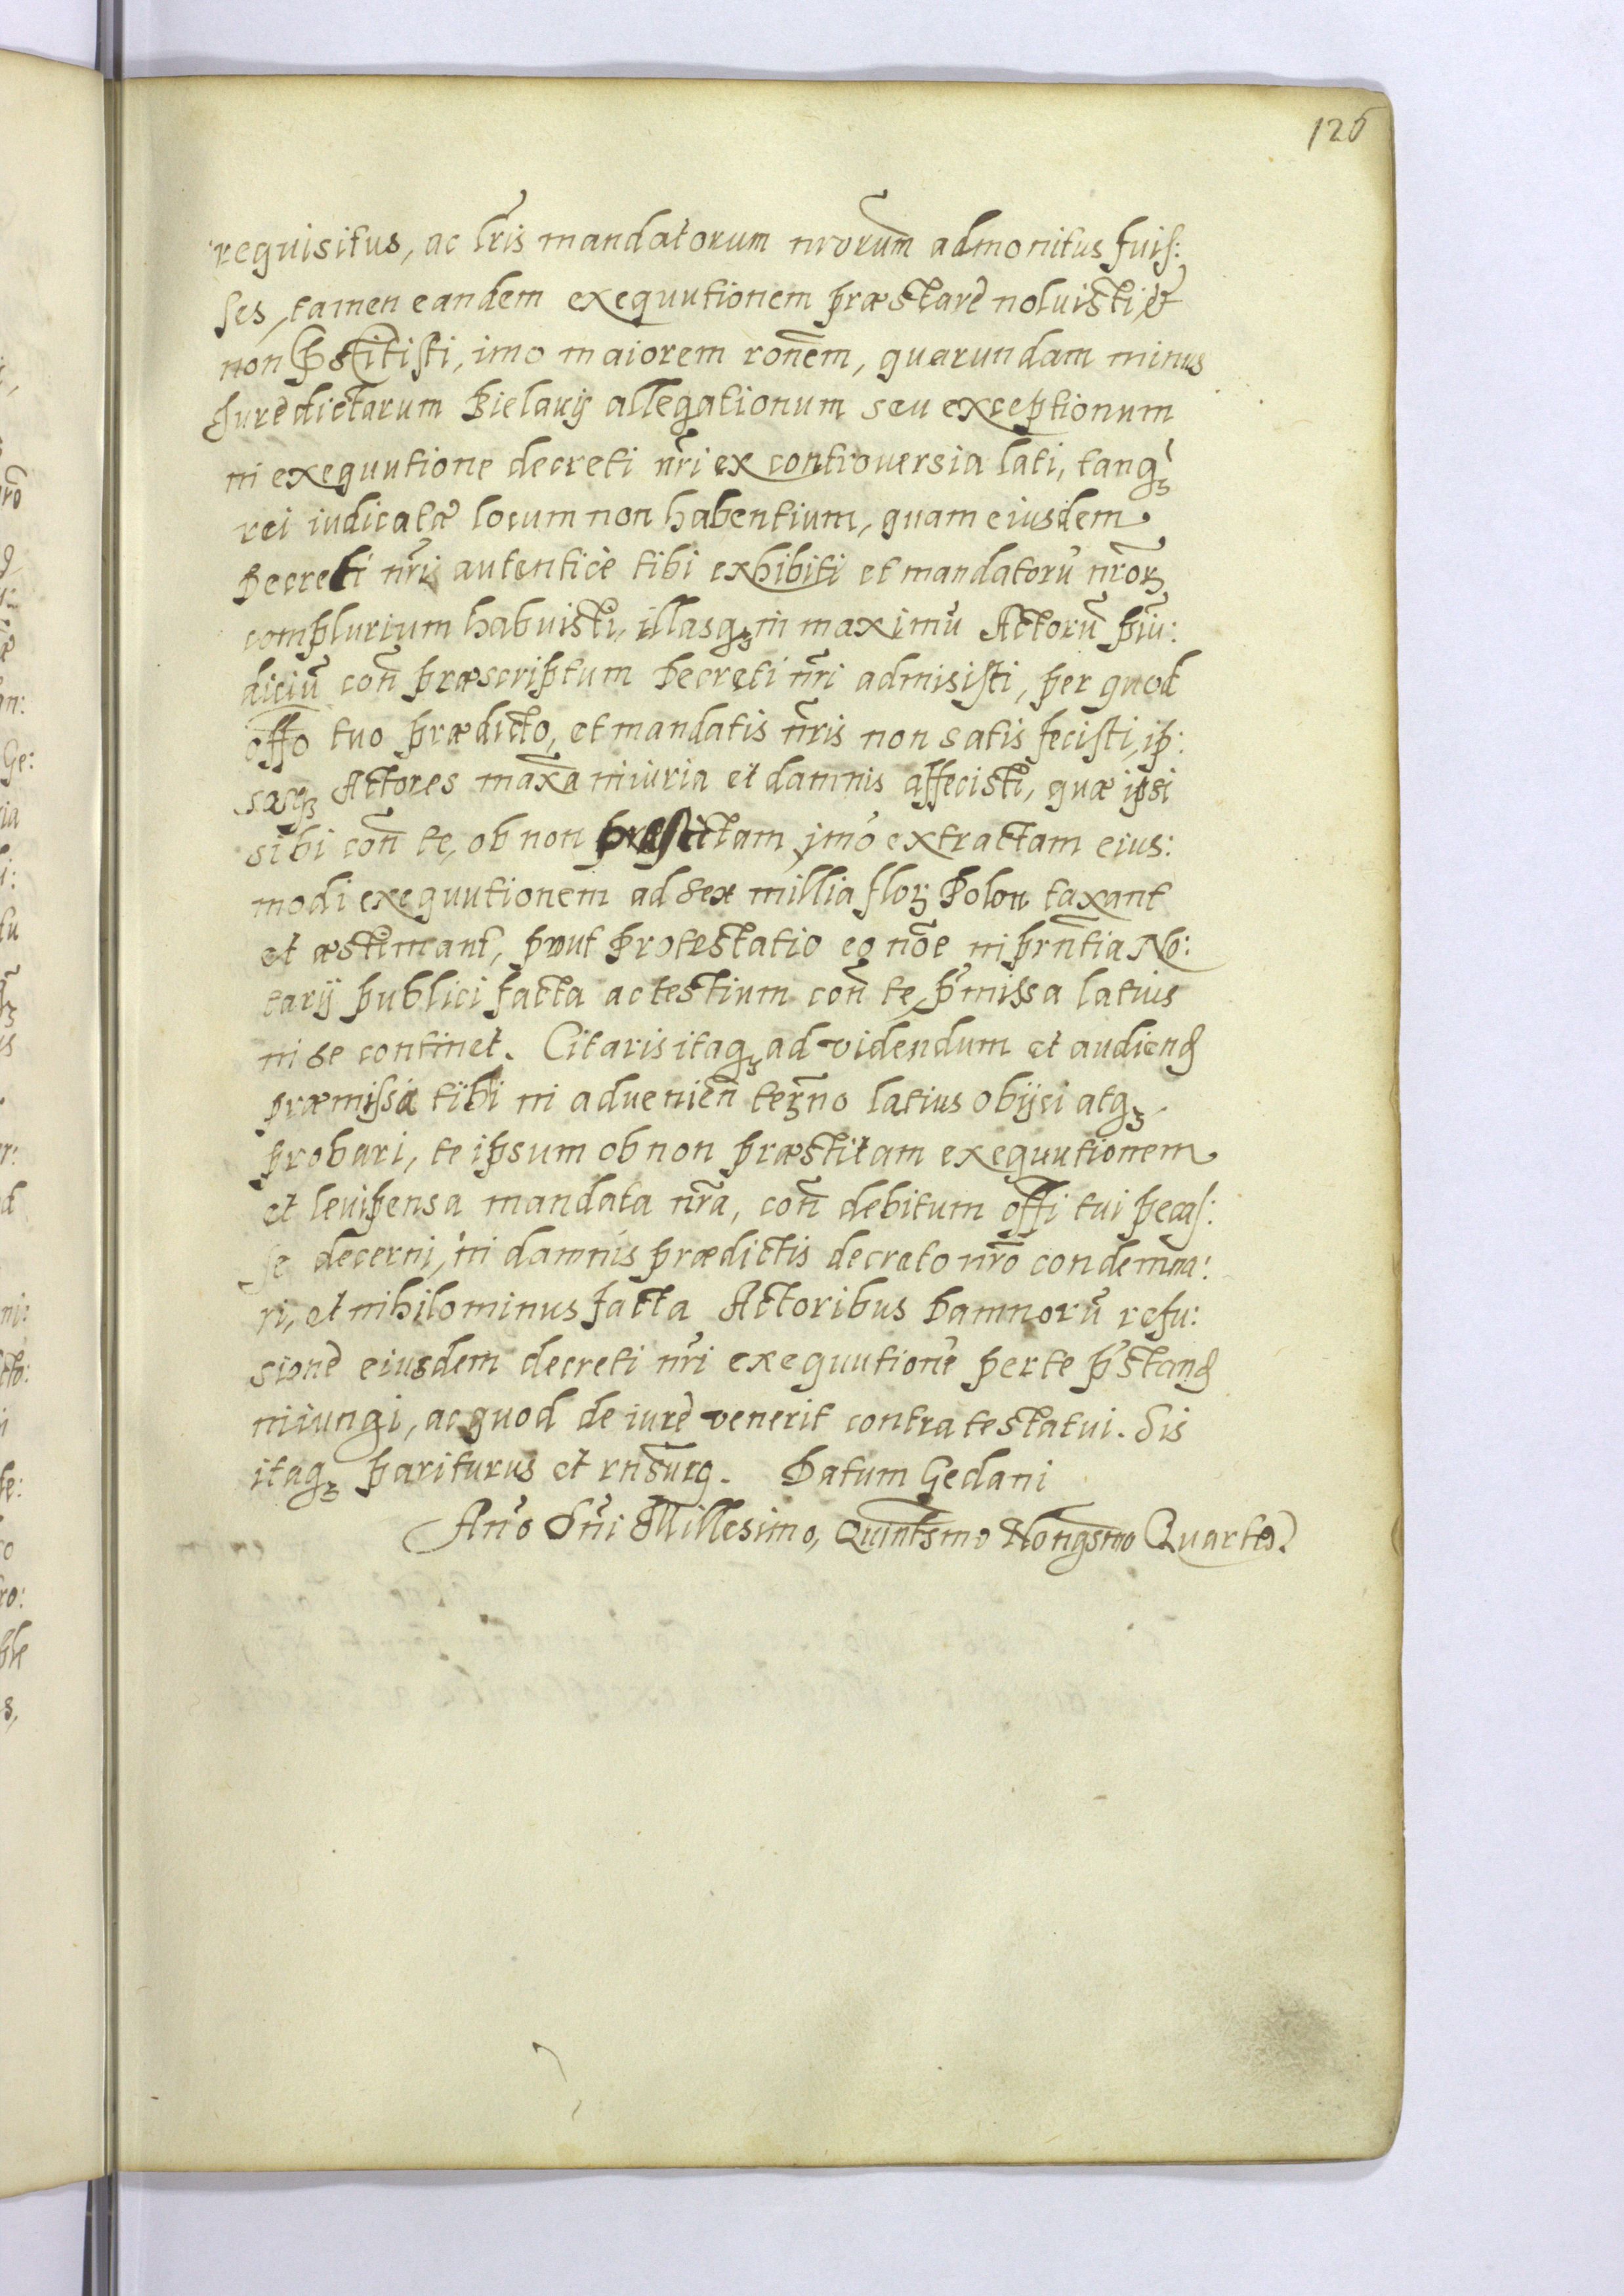 126
requisitus, ac lr̃is mandatorum nr̃orum admonitus fuis:
ses, tamen eandem exequutionem præstare noluisti, et
non p̃stitisti, imo maiorem ron̄em, quarundam minus
Jure dictarum Bielavij allegationum seu exceptionum
in exequutione decreti nr̃i ex controversia lati, tanq̃
rei iudicatæ locum non habentium, quam eiusdem
Decreti nr̃i autentice tibi exhibiti et mandatorũ nr̃orꝫ
complurium habuisti, illasqꝫ in maximũ Actorũ p̃iu:
diciũ con̄ præscriptum Decreti nr̃i admisisti, per quod
offo tuo prædicto, et mandatis nr̃is non satis fecisti, ip:
sosqꝫ Actores max̃a iniuria et damnis affecisti, quæ ipsi
sibi con̄ te, ob non præstitam imò extractam eius:
modi exequutionem ad sex millia florꝫ Polon taxant
et æstimant, prout Protestatio eo nõe in pr̃ntia No:
tarij publici facta ac testium con̄ te, p̃missa latius
in se continet. Citaris itaqꝫ ad videndum et audiend
præmissa tibi in advenien̄ term̃no latius obijci atqꝫ
probari, te ipsum ob non præstitam exequutionem
et levipensa mandata nr̃a, con̄ debitum offi tui pecas:
se decerni, in damnis prædictis decreto nr̃o condemna:
ri, et nihilominus facta Actoribus Damnorũ refu:
sione eiusdem decreti nr̃i exequutionẽ per te p̃stand
iniungi, ac quod de iure venerit contra te statui. Sis
itaqꝫ pariturus et rñsurq. Datum Gedani
Anño Dñi Millesimo, Quintsmo Nongsmo Quarto.